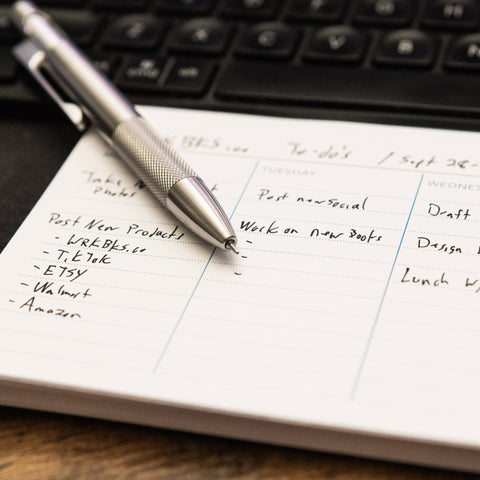 Z X C V B N
WRKBKS.co To-do's / Sept 28-
TUESDAY
WEDNES
Take N
Photos
Post New Products
- WRKBKS.co
- TikTok
- ETSY
- Walmart
- Amazon
Post new social
Work on new Books
-
-
-
Draft
Design
Lunch w/